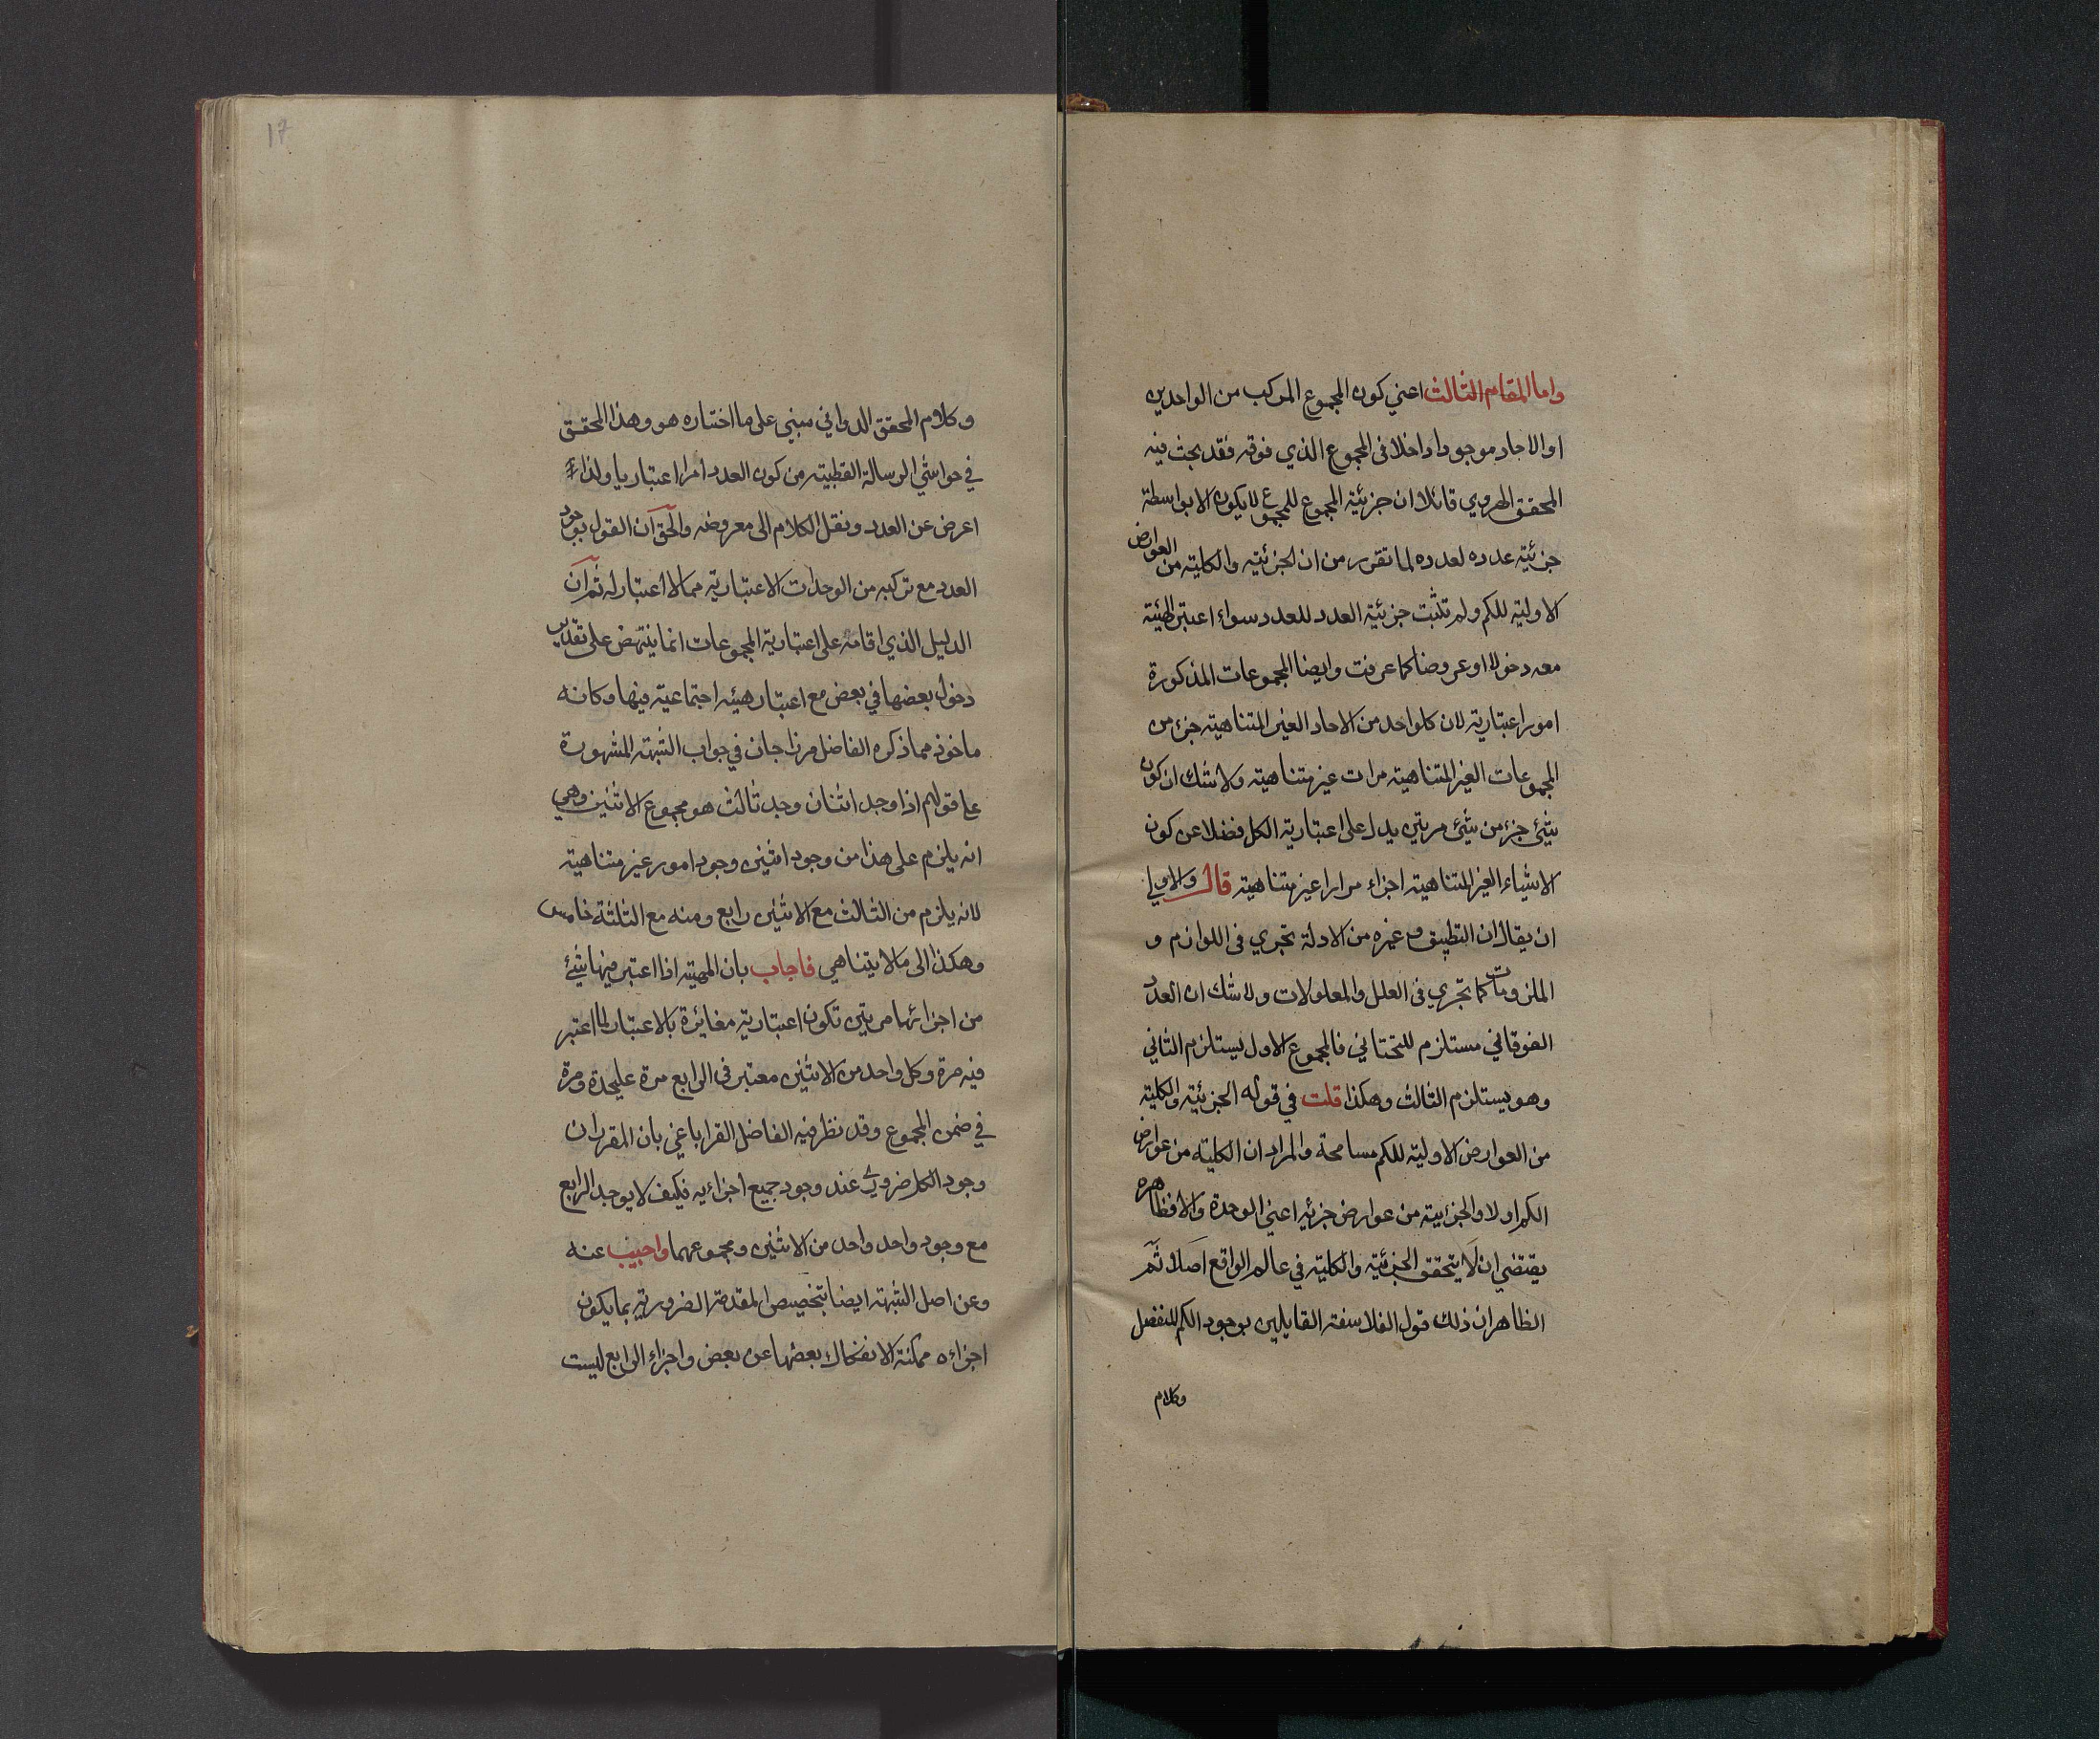 واما المقام الثالث اعني كون المجموع المركب من الواحدين
او الاحاد موجودا داخلا فى المجموع الذي فوقه فقد بحث فيه
المحقق الهروي قائلا ان جزئية المجموع للمجموع لايكون الا بواسطة
جزئية عدده لعدده لما تقرر من ان الجزئية والكلية من العوارض
الاولية للكم ولم تثبت جزئية العدد للعدد سواء اعتبر الهيئة
معه دخولا او عروضا كما عرفت وايضا المجموعات المذكورة
امور اعتبارية لان كلواحد من الاحاد الغير المتناهية جزء من
المجموعات الغير المتناهية مرات غير متناهية ولا شك ان كون
شيئ جزء من شيئ مرتين يدل على اعتبارية الكل فضلا عن كون
الاشياء الغير المتناهية اجزاء مرارا غير متناهية قال والاولى
ان يقال ان التطبيق وغيره من الادلة تجري فى اللوازم و
الملزومات كما تجري فى العلل والمعلولات ولا شك ان العدد
الفوقاني مستلزم للتحتاني فالمجموع الاول يستلزم الثاني
وهو يستلزم الثالث وهكذا قلت في قوله الجزئية والكلية
من العوارض الاولية للكم مسامحة والمراد ان الكلية من عوارض
الكم اولا والجزئية من عوارض جزئه اعني الوحدة والا فظاهره
يقتضي ان لا يتحقق الجزئية والكلية في عالم الواقع اصلا ثم
الظاهر ان ذلك قول الفلاسفة القايلين بوجود الكم المنفصل
وكلام
17
وكلام المحقق الدوائي مبني على ما اختاره هو وهذا المحقق
في حواشي الرسالة القطبية من كون العدد امرا اعتباريا ولذا
اعرض عن العدد ونقل الكلام الى معروضه والحق ان القول بوجود
العدد مع تركبه من الوحدات الاعتبارية مما لا اعتبار له ثم ان
الدليل الذي اقامه على اعتبارية المجموعات انما ينتهض على تقدير
دخول بعضها في بعض مع اعتبار هيئه اجتماعية فيها وكانه
ماخوذ مما ذكره الفاضل مرزاجان في جواب الشبهة المشهورة
على قولهم اذا وجد اثنان وجد ثالث هو مجموع الاثنين وهي
انه يلزم على هذا من وجود اثنين وجود امور غير متناهية
لانه يلزم من الثالث مع الاثنين رابع ومنه مع الثلثة خامس
وهكذا الى مالا يتناهي فاجاب بان المهية اذا اعتبر فيها شيئ
من اجزائها مرتين تكون اعتبارية مغائرة بالاعتبار لما اعتبر
فيه مرة وكل واحد من الاثنين معتبر فى الرابع مرة عليحدة ومرة
في ضمن المجموع وقد نظر فيه الفاضل القراباغي بان المقرر ان
وجود الكل ضروري عند وجود جميع اجزائه فكيف لا يوجد الرابع
مع وجود واحد واحد من الاثنين ومجموعهما واجيب عنه
وعن اصل الشبهة ايضا بتخصيص المقدمة الضرورية بما يكون
اجزاءه ممكنة الانفكاك بعضها عن بعض واجزاء الرابع ليست